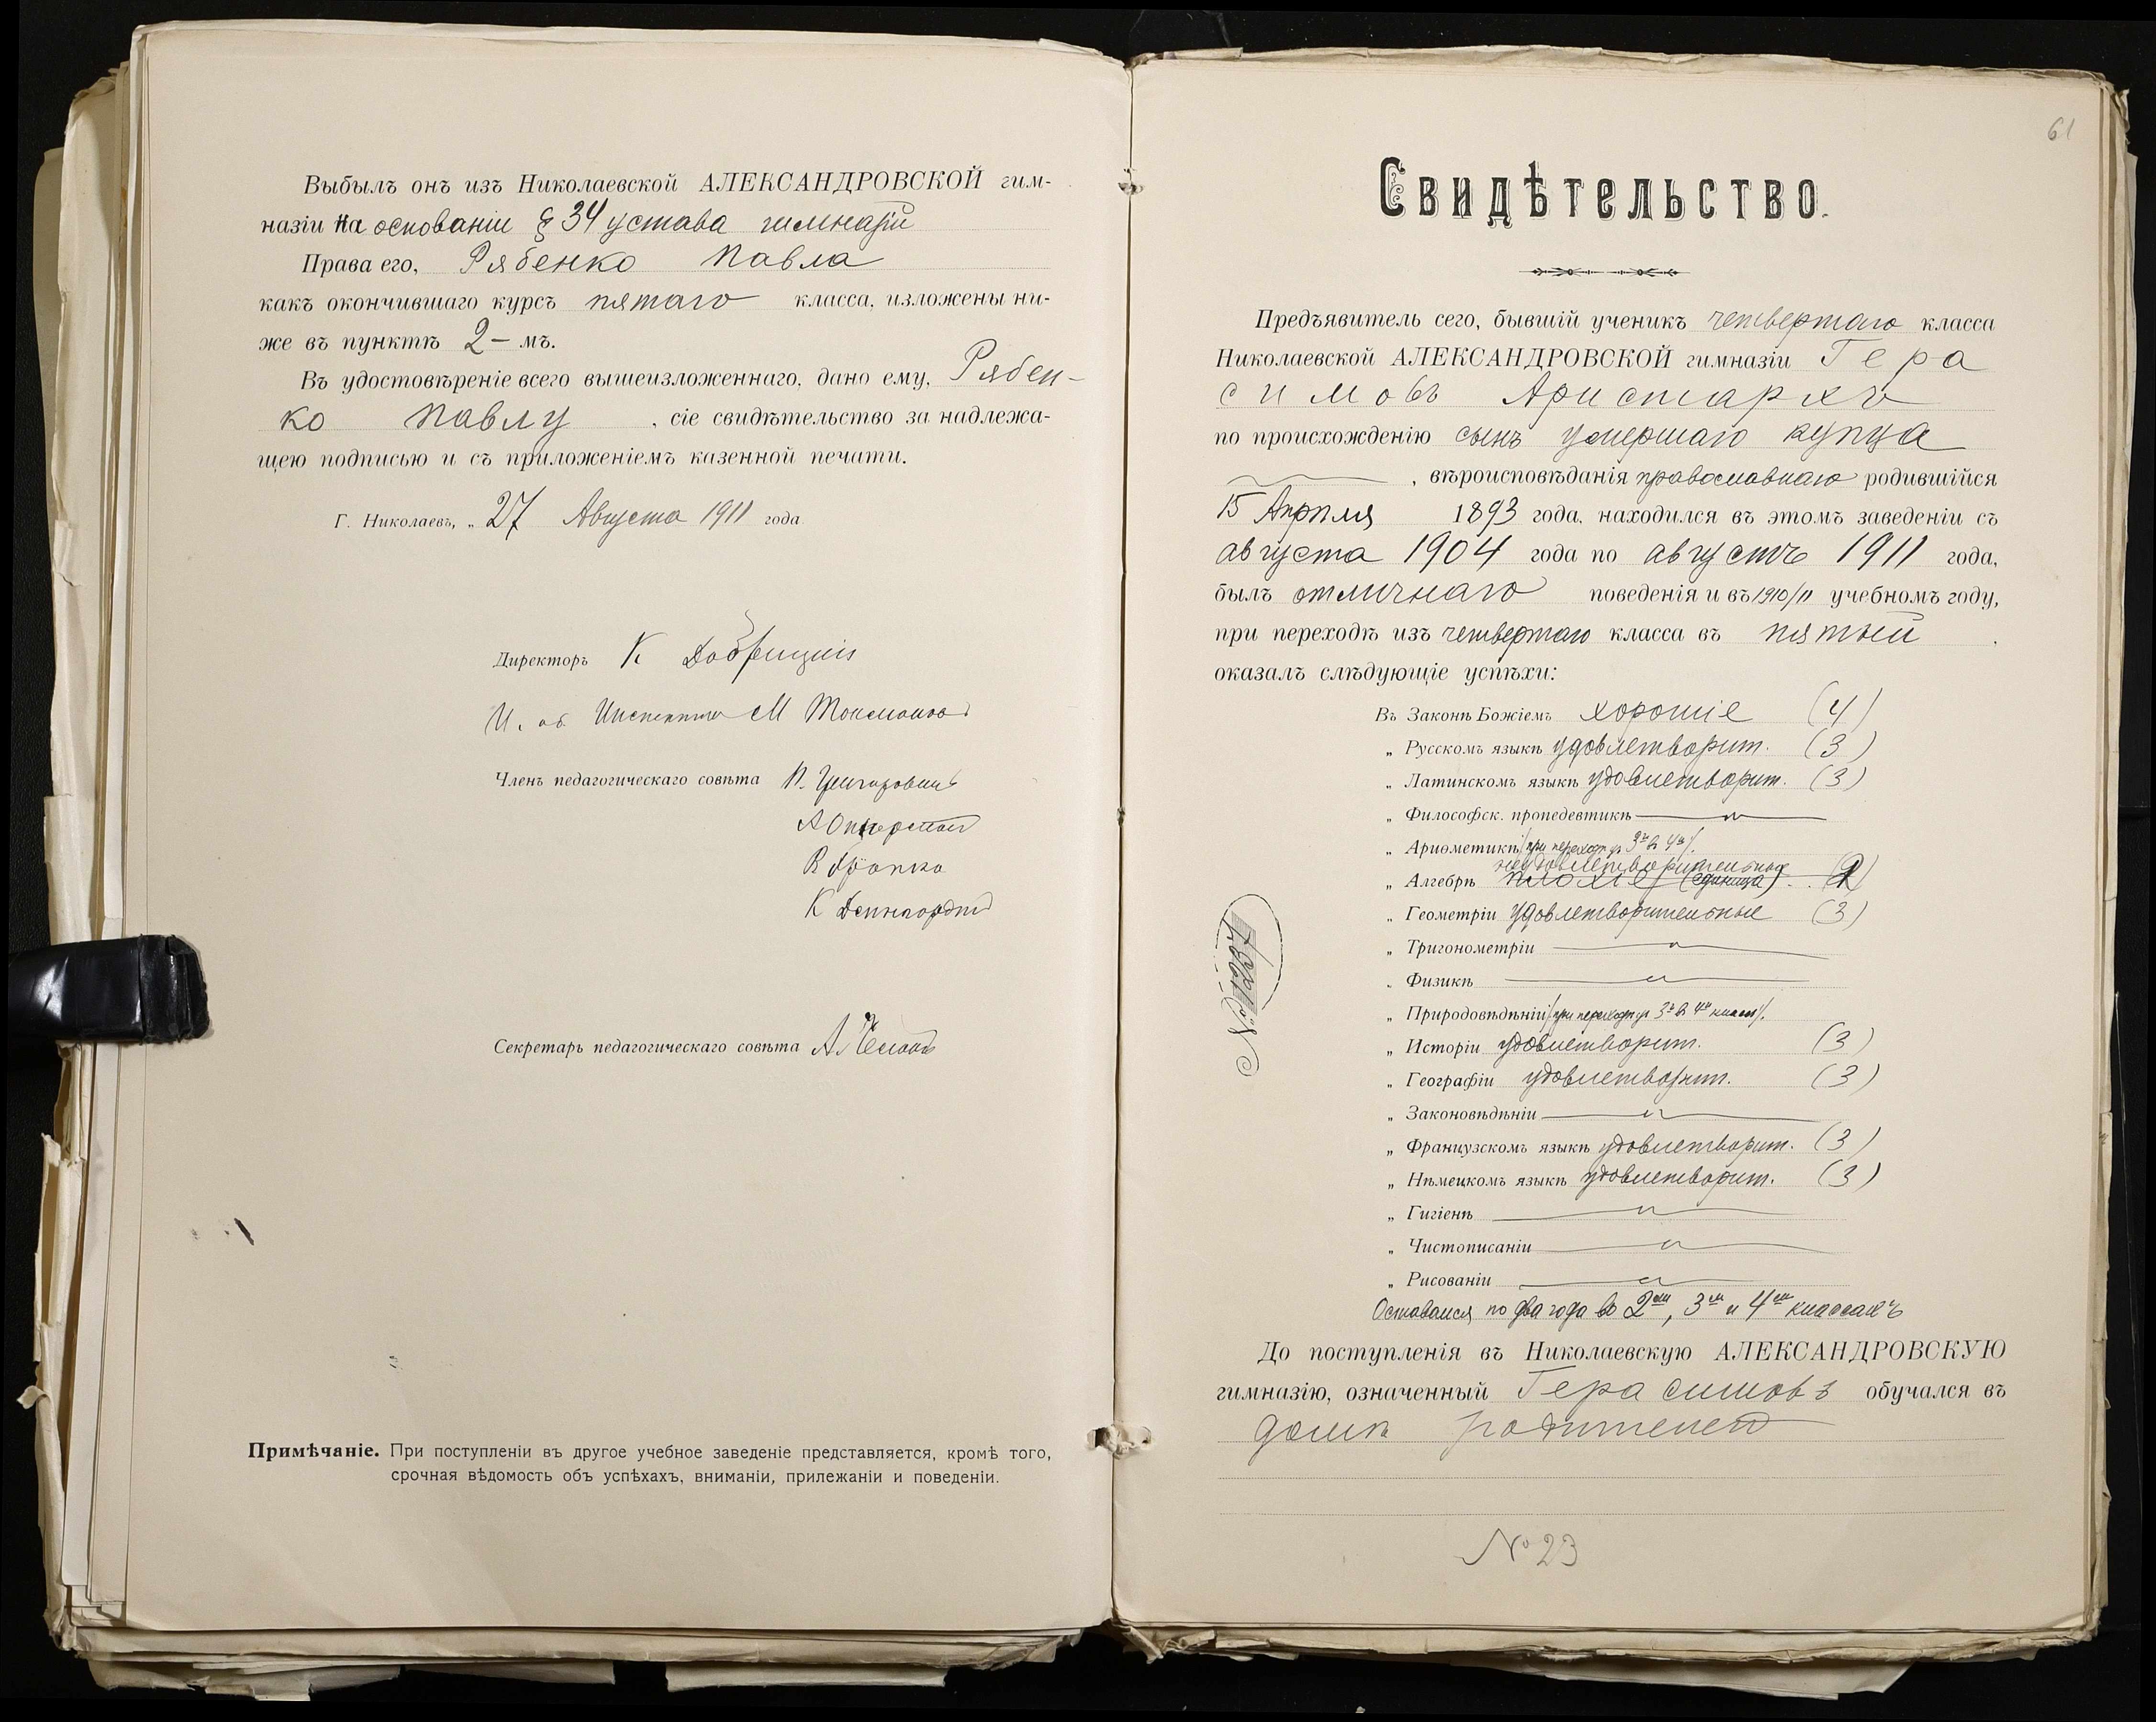 Выбылъ онъ изъ Николаевской АЛЕКСАНДРОВСКОЙ гим-
назіи на основаніи § 34 устава гимназіи
Права его, Рябенко Павла
какъ окончившаго курсъ пятаго класса, изложены ни-
же въ пунктѣ 2 – мъ.
Въ удостовѣреніе всего вышеизложеннаго, дано ему, Рябен-
ко Павлу , сіе свидѣтельство за надлежа-
щею подписью и съ приложеніемъ казенной печати.
Г. Николаевъ, „ 27 Августа 1911 года
Директоръ К
И. об. Инспектора М
Членъ педагогическаго совѣта
Секретарь педагогическаго совѣта А.
Примѣчаніе. При поступленіи въ другое учебное заведеніе представляется, кромѣ того,
срочная вѣдомость объ успѣхахъ, вниманіи, прилежаніи и поведеніи.
61
Свидѣтельство.
Предъявитель сего, бывшій ученикъ четвертаго класса
Николаевской АЛЕКСАНДРОВСКОЙ гимназіи Гера
симовъ Аристархъ
по происхожденію сынъ умершаго купца
, вѣроисповѣданія православнаго родившійся
15 Апрѣля 1893 года, находился въ этомъ заведеніи съ
августа 1904 года по августъ 1911 года,
былъ отличнаго поведенія и въ 1910/11 учебномъ году,
при переходѣ изъ четвертаго класса въ пятый .
оказалъ слѣдующіе успѣхи:
Въ Законѣ Божіемъ хорошіе (4)
„ Русскомъ языкѣ удовлетворит. (3)
„ Латинскомъ языкѣ удовлетворит. (3)
„ Философск. пропедевтикѣ
„ Ариѳметикѣ /при переходѣ изъ 3го въ 4й/.
неудовлетворительные
„ Алгебрѣ плохіе (единица) . . (2)
„ Геометріи удовлетворительные (3)
„ Тригонометріи
„ Физикѣ
„ Природовѣдѣніи /при переходѣ изъ 3го въ 4й классъ/.
„ Исторіи удовлетворит. (3)
„ Географіи удовлетворит. (3)
„ Законовѣдѣніи
„ Французскомъ языкѣ удовлетворит. (3)
„ Нѣмецкомъ языкѣ удовлетворит. (3)
„ Гигіенѣ
„ Чистописаніи
„ Рисованіи
Оставался по два года во 2мъ, 3мъ и 4мъ классахъ
До поступленія въ Николаевскую АЛЕКСАНДРОВСКУЮ
гимназію, означенный Герасимовъ обучался въ
домѣ родителей
№ 23
№ 1257